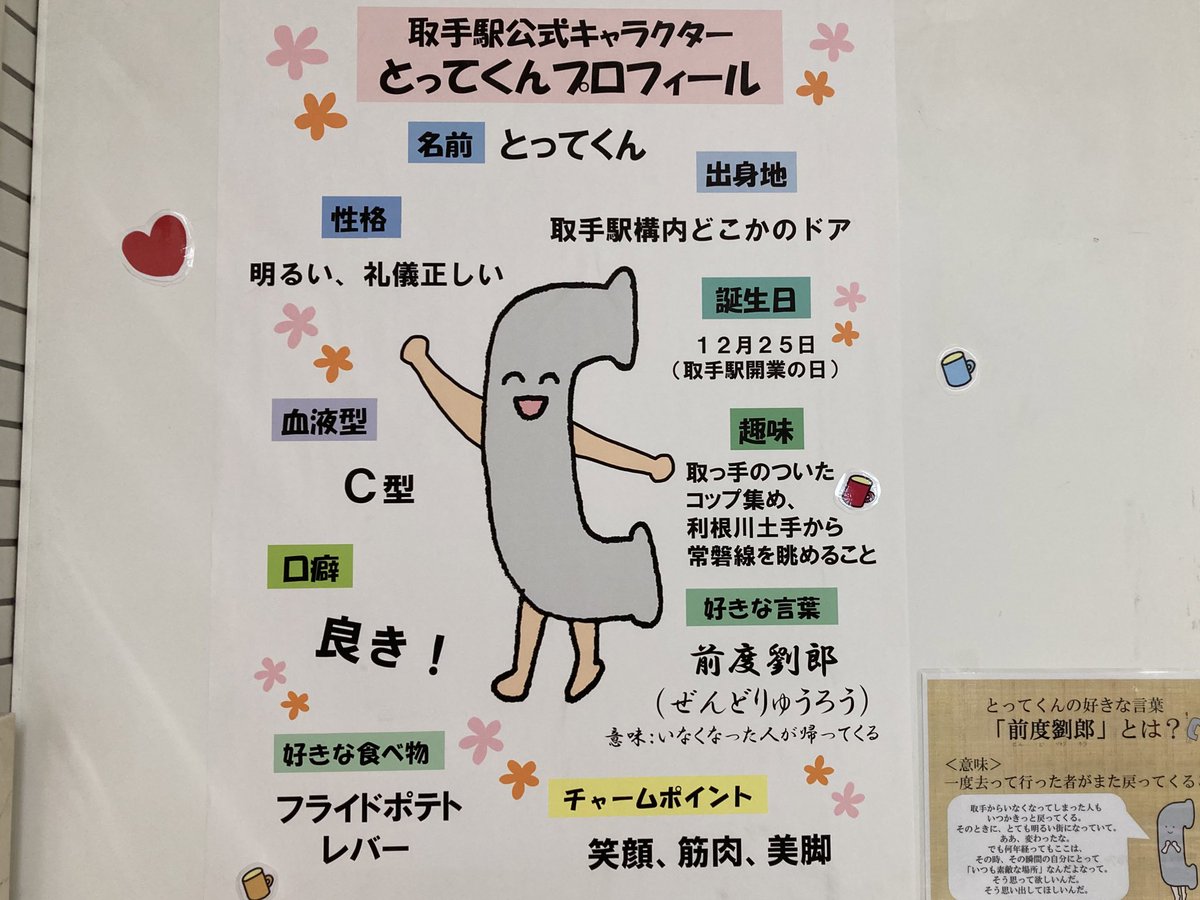 取手駅公式キャラクター
とってくんプロフィール
名前 とってくん
出身地
取手駅構内どこかのドア
性格
明るい、礼儀正しい
誕生日
12月25日
(取手駅開業の日)
血液型
C型
趣味
取っ手のついた
コップ集め、
利根川土手から
常磐線を眺めること
口癖
良き!
好きな言葉
前度劉郎
(ぜんどりゅうろう)
意味:いなくなった人が帰ってくる
好きな食べ物
フライドポテト
レバー
チャームポイント
笑顔、筋肉、美脚
とってくんの好きな言葉
「前度劉郎」とは?
<意味>
一度去って行った者がまた戻ってくる
取手からいなくなってしまった人も
いつかきっと戻ってくる。
そのときに、とても明るい街になっていて。
ああ、変わったな。
でも何年経ってもここは、
その時、その瞬間の自分にとって
「いつも素敵な場所」なんだよなって。
そう思って欲しいんだ。
そう思い出してほしいんだ。